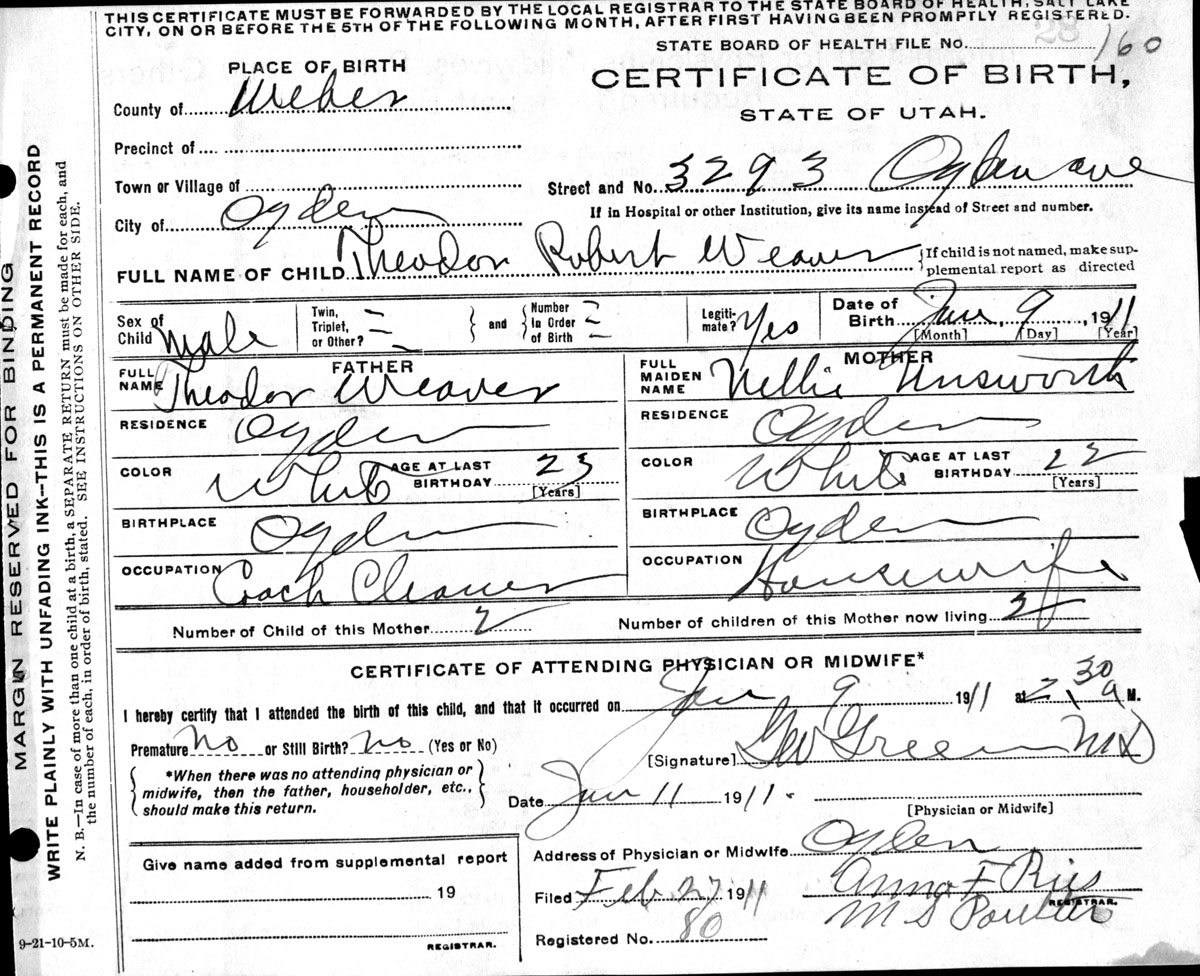 THIS CERTIFICATE MUST BE FORWARDED BY THE LOCAL REGISTRAR TO THE STATE BOARD OF HEALTH, SALT LAKE
CITY, ON OR BEFORE THE 5TH OF THE FOLLOWING MONTH, AFTER FIRST HAVING BEEN PROMPTLY REGISTERED.
STATE BOARD OF HEALTH FILE No. 160
28
PLACE OF BIRTH
CERTIFICATE OF BIRTH,
STATE OF UTAH.
County of Weber
Precinct of
Town or Village of
Street and No. 3293 Ogden ave
If in Hospital or other Institution, give its name instead of Street and number.
City of Ogden
FULL NAME OF CHILD Theodor Robert Weaver
{If child is not named, make sup-
plemental report as directed
Sex of Child Male
Twin, Triplet, or Other? =
and
Number In Order of Birth =
Legiti-mate? Yes
Date of Birth Jan 9, 1911
[Month] [Day] [Year]
FATHER
FULL NAME Theodor Weaver
RESIDENCE Ogden
COLOR White
AGE AT LAST BIRTHDAY 23
[Years]
BIRTHPLACE Ogden
OCCUPATION Coach Cleaner
MOTHER
FULL MAIDEN NAME Nellie Unsworth
RESIDENCE Ogden
COLOR White
AGE AT LAST BIRTHDAY 22
[Years]
BIRTHPLACE Ogden
OCCUPATION Housewife
Number of Child of this Mother 2
Number of children of this Mother now living 2
CERTIFICATE OF ATTENDING PHYSICIAN OR MIDWIFE*
I hereby certify that I attended the birth of this child, and that it occurred on Jan 9 1911 at 2.30 a M.
Premature? No or Still Birth? No (Yes or No)
[Signature] Geo Green MD
{*When there was no attending physician or
midwife, then the father, householder, etc.,
should make this return.}
Date Jan 11 1911.
[Physician or Midwife]
Give name added from supplemental report
19
REGISTRAR.
Address of Physician or Midwife Ogden
Filed Feb 27 1911
Anna F
REGISTRAR.
M S
Registered No. 80
9-21-10-5M.
MARGIN RESERVED FOR BINDING
WRITE PLAINLY WITH UNFADING INK--THIS IS A PERMANENT RECORD
N. B.—In case of more than one child at a birth, a SEPARATE RETURN must be made for each, and
the number of each, in order of birth, stated. SEE INSTRUCTIONS ON OTHER SIDE.